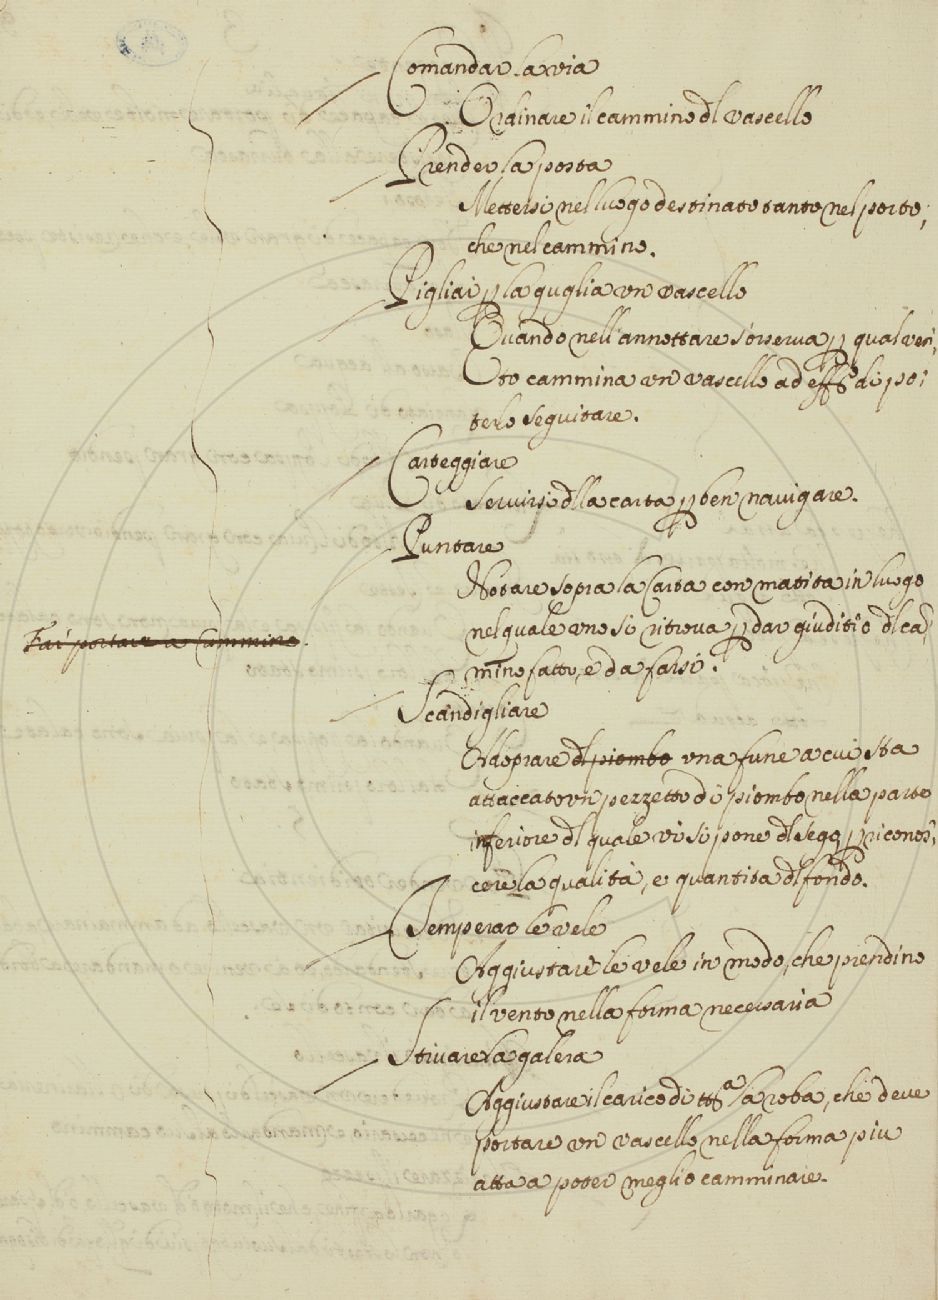 Comandar la via
Ordinare il cammino dl vascello
Prender la posta
Mettersi nel luogo destinato tanto nel porto,
che nel cammino.
Pigliar p la guglia un vascello
Quando nell'annottare s'osserva p qual ven,
to cammina un vascello ad effto di po,
terlo seguitare.
Carteggiare
Servirsi dlla carta p ben navigare.
Puntare
Notare sopra la Carta con matita in luogo
nel quale uno si ritrova p dar giuditio dl ca,
mino fatto, e da farsi.
Far portare a Cammino.
Scandigliare
Adoprare dl piombo una fune a cui sta
attaccato un pezzetto di piombo nella parte
inferiore dl quale vi si pone dl sego p riconos,
cere la qualità, e quantita dl fondo.
Temperar le vele
Aggiustare le vele in modo, che prendino
il vento nella forma necessaria
Stivare la galera
Aggiustare il carico di tta la roba, che deve
portare un vascello nella forma piu
atta a poter meglio camminare.